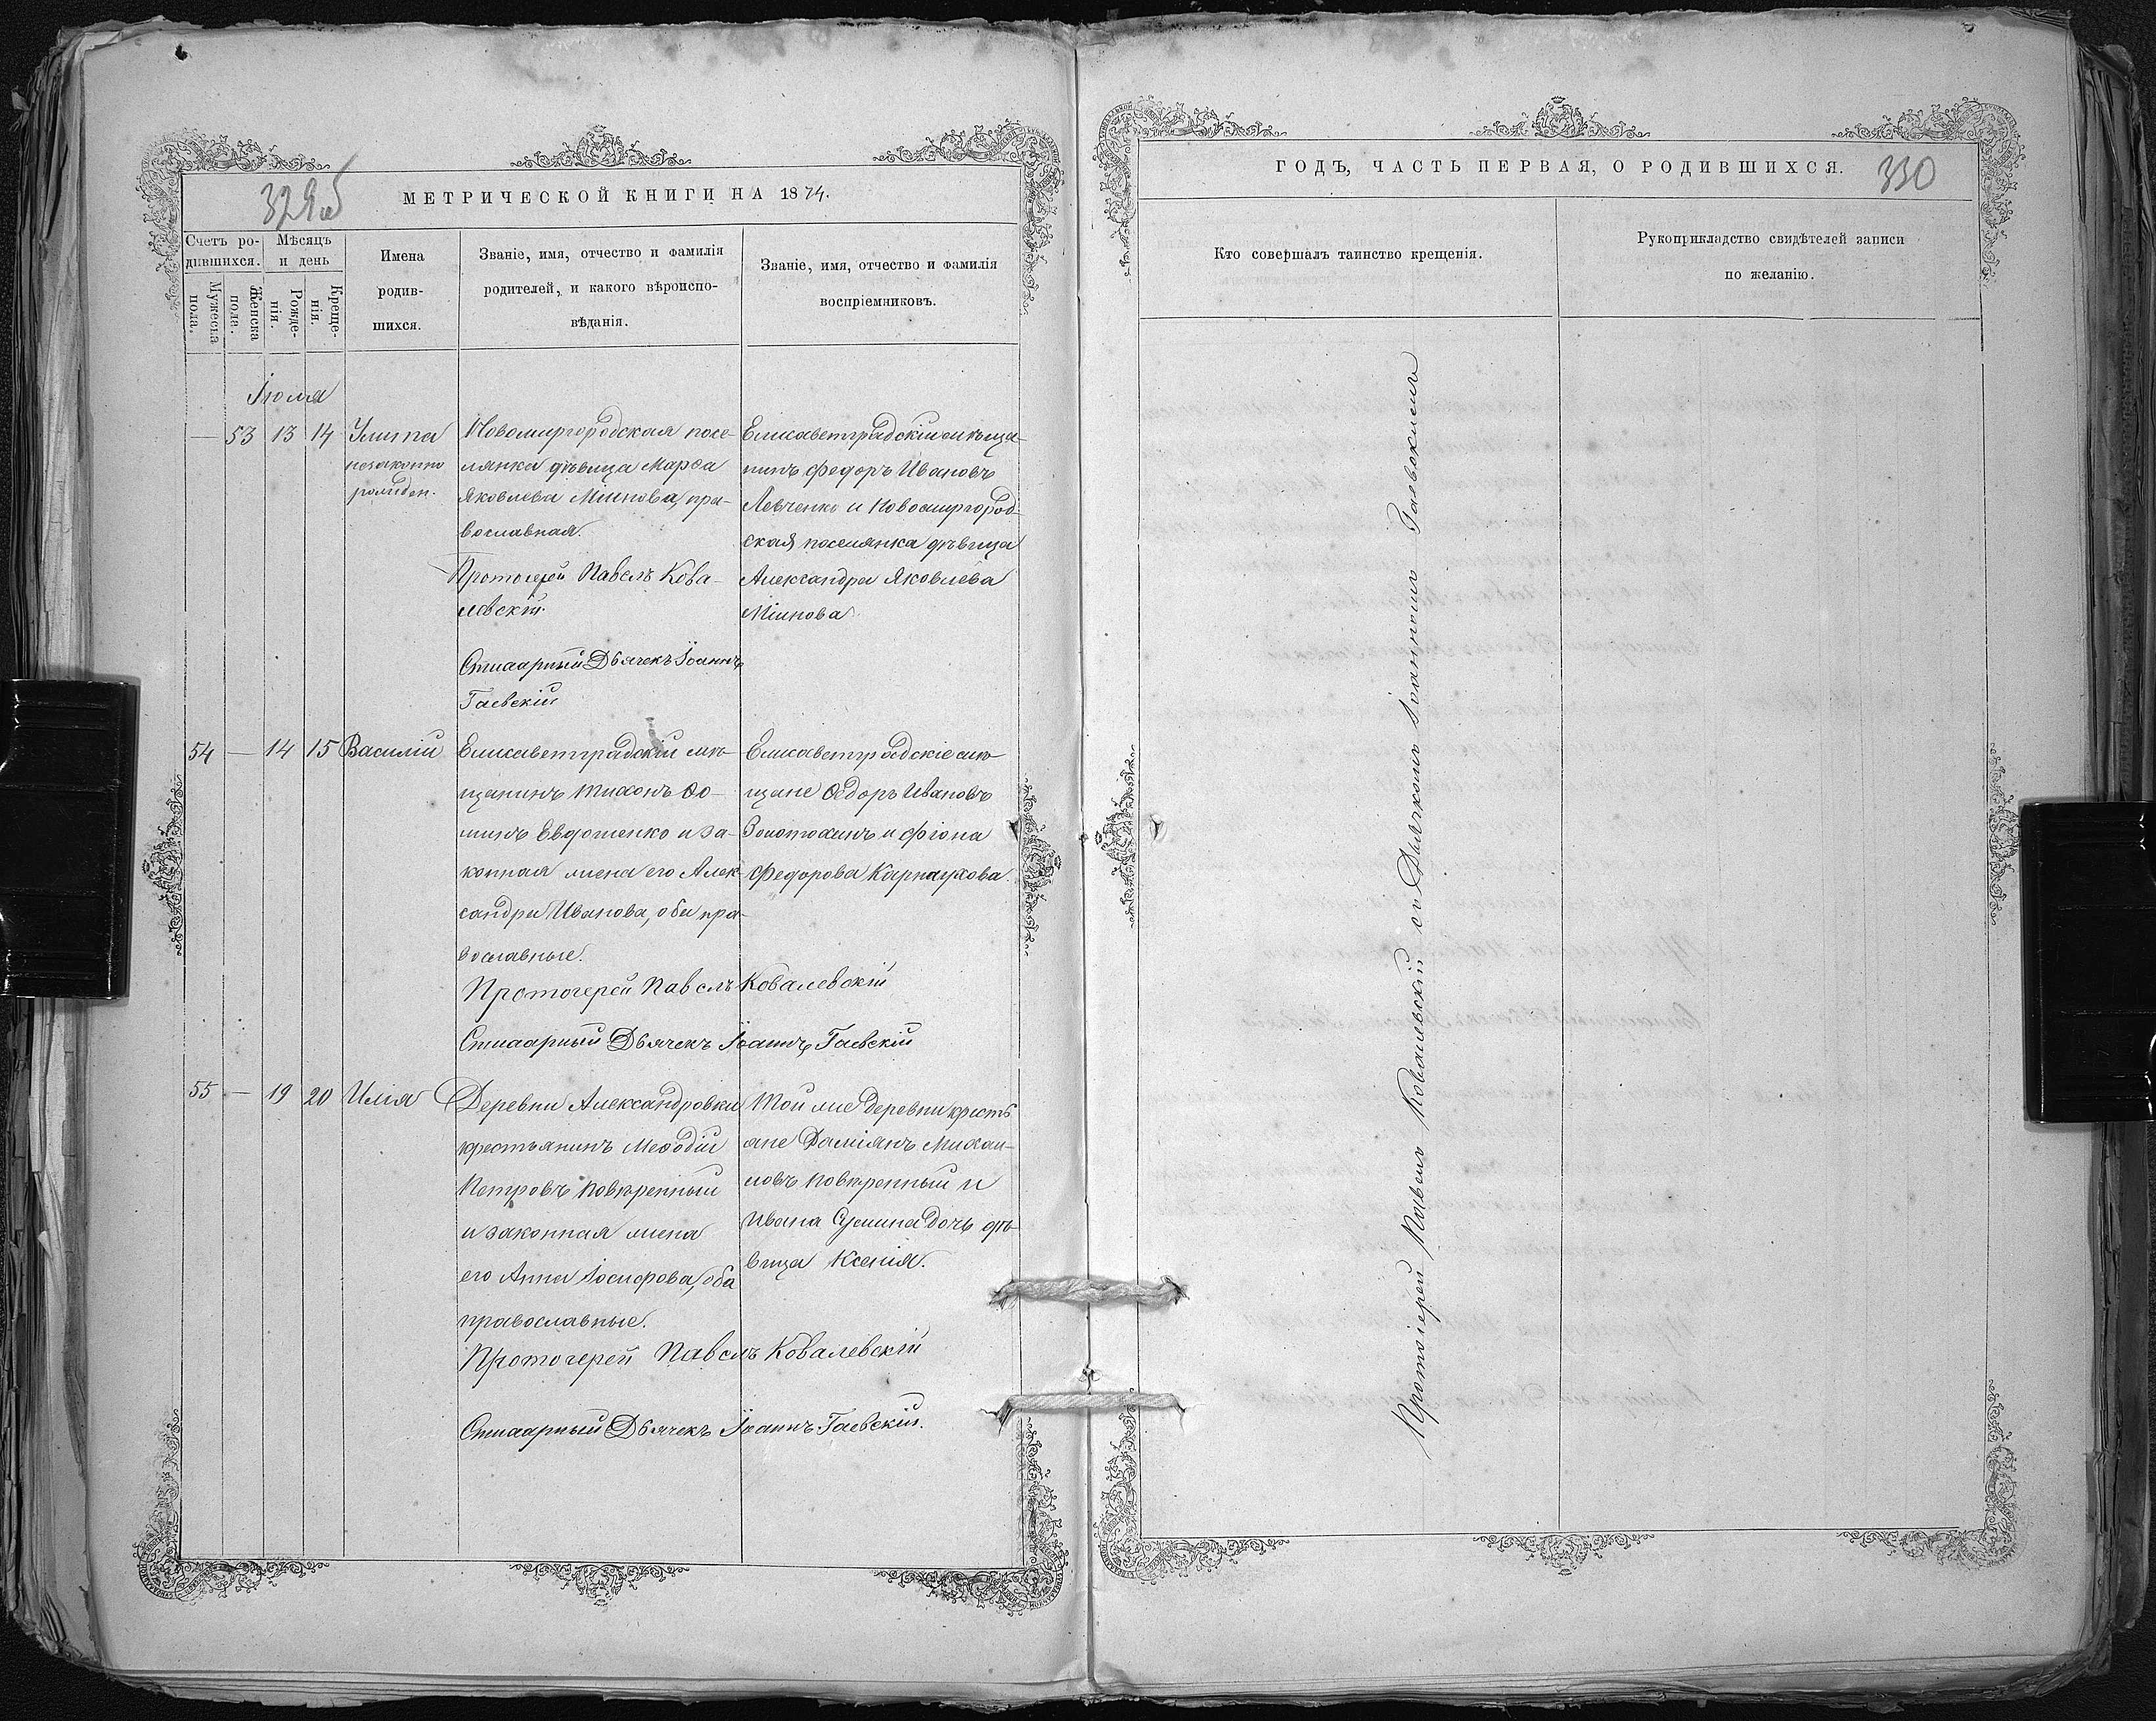 329об
МЕТРИЧЕСКОЙ КНИГИ НА 1874.
Счетъ ро-
дившихся.
Мужеска
пола.
Женска
пола.
Мѣсяцъ
и день
Рожде-
нія.
Креще-
нія.
Имена
родив-
шихся.
Званіе, имя, отчество и фамилія
родителей, и какого вѣроиспо-
вѣданія.
Званіе, имя, отчество и фамилія
воспріемниковъ.
Іюля
— 53 13 14
Улита
незаконно
рожден.
Новомиргородская посе-
лянка дѣвица Марѳа
Яковлева Мiинова, пра-
вославная.
Протоіерей Павелъ Кова-
левскій
Стихарный Дьячекъ Іоаннъ
Гаевскій
Елисаветградскій мѣща-
нинъ Федоръ Ивановъ
Левченко и Новомиргород-
ская поселянка дѣвица
Александра Яковлева
Мiинова
54 — 14 15
Василій
Елисаветградскій мѣ-
щанинъ Тихонъ Ѳо-
минъ Евдошенко и за-
конная жена его Алек-
сандра Иванова, оба пра-
вославные.
Протоіерей Павелъ Ковалевскій
Стихарный Дьячекъ Іоаннъ Гаевскій
Елисаветградскіе мѣ-
щане Ѳедоръ Ивановъ
Золотохинъ и Фіона
Федорова Карнаухова.
55 — 19 20
Илія
Деревни Александровки
крестьянинъ Меѳодій
Петровъ Повѣренный
и законная жена
его Анна Іосифова, оба
православные.
Протоіерей Павелъ Ковалевскій
Стихарный Дьячекъ Іоаннъ Гаевскій.
Той же деревни кресть
яне Даміянъ Михаи-
ловъ Повѣренный и
Ивана дочь дѣ-
вица Ксенія.
ГОДЪ, ЧАСТЬ ПЕРВАЯ, О РОДИВШИХСЯ.
330
Кто совершалъ таинство крещенія.
Рукоприкладство свидѣтелей записи
по желанію.
Протоіерей Павелъ Ковалевскій съ Дьячкомъ Іоанномъ Гаевскимъ